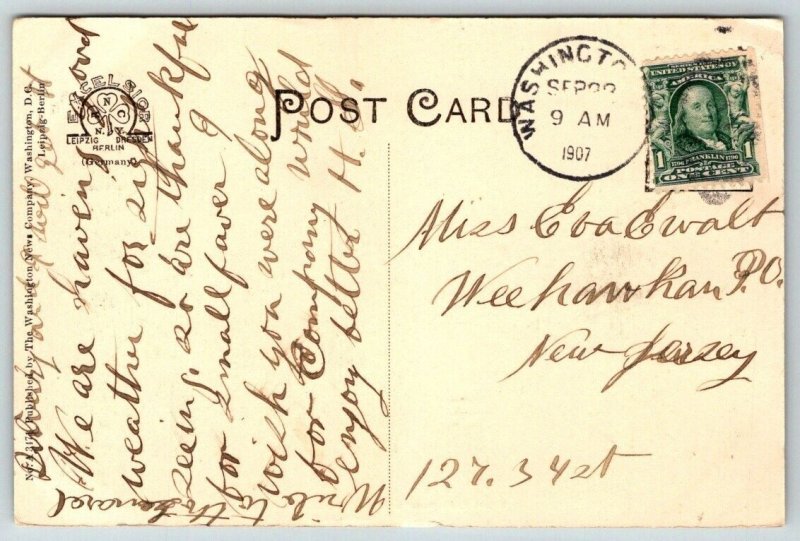 POST CARD
WASHINGTO
SEP
9 AM
1907
SERIES
UNITED STATES OF
AMERICA
1790 FRANKLIN
1 POSTAGE 1
ONE CENT
EXCELSIOR
N.Y.
LEIPZIG DRESDEN
BERLIN
(Germany)
Published by The Washington News Company, Washington, D.C.
Leipzig-Berlin
We are haven good
weather for sight
seeing, so are thankful
for small faver I
wish you were along
for Company would
enjoy better H. A.
Write to the
Miss Eva Ewalt
Weehawkan P.O.
New Jersey
127. 3 4 st